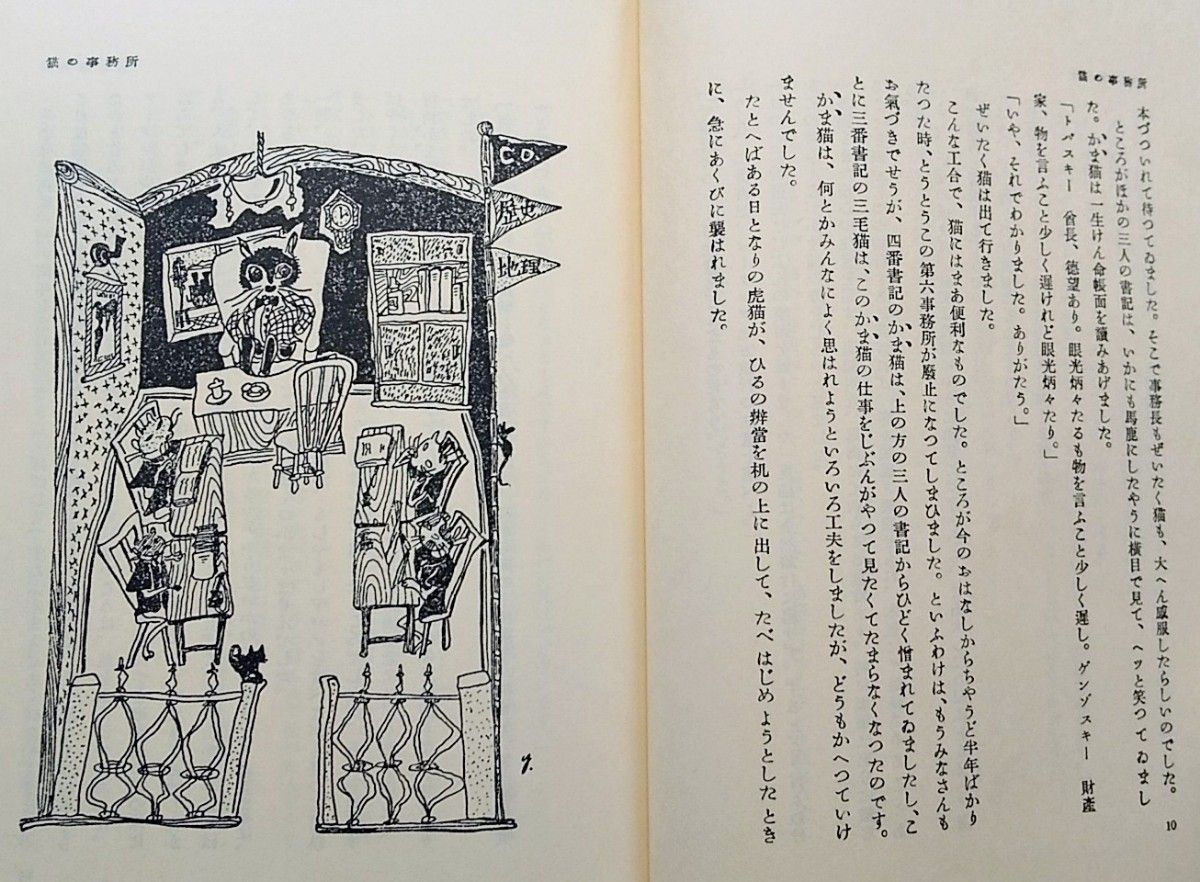 猫の事務所
本づついれて待つてゐました。そこで事務長もぜいたく猫も、大へん感服したらしいのでした。
ところがほかの三人の書記は、いかにも馬鹿にしたやうに横目で見て、ヘツと笑つてゐまし
た。かま猫は一生けん命帳面を讀みあげました。
「トバスキー 酋長、徳望あり。眼光炳々たるも物を言ふこと少しく遅し。ゲンゾスキー 財産
家、物を言ふこと少しく遅けれど眼光炳々たり。」
「いや、それでわかりました。ありがたう。」
ぜいたく猫は出て行きました。
こんな工合で、猫にはまあ便利なものでした。ところが今のおはなしからちやうど半年ばかり
たつた時、とうとうこの第六事務所が廢止になつてしまひました。といふわけは、もうみなさんも
お氣づきでせうが、四番書記のかま猫は、上の方の三人の書記からひどく憎まれてゐましたし、こ
とに三番書記の三毛猫は、このかま猫の仕事をじぶんがやつて見たくてたまらなくなつたのです。
かま猫は、何とかみんなによく思はれようといろいろ工夫をしましたが、どうもかへつていけ
ませんでした。
たとへばある日となりの虎猫が、ひるの辨當を机の上に出して、たべはじめようとしたとき
に、急にあくびに襲はれました。
10
猫の事務所
CD
歴史
地理
y.